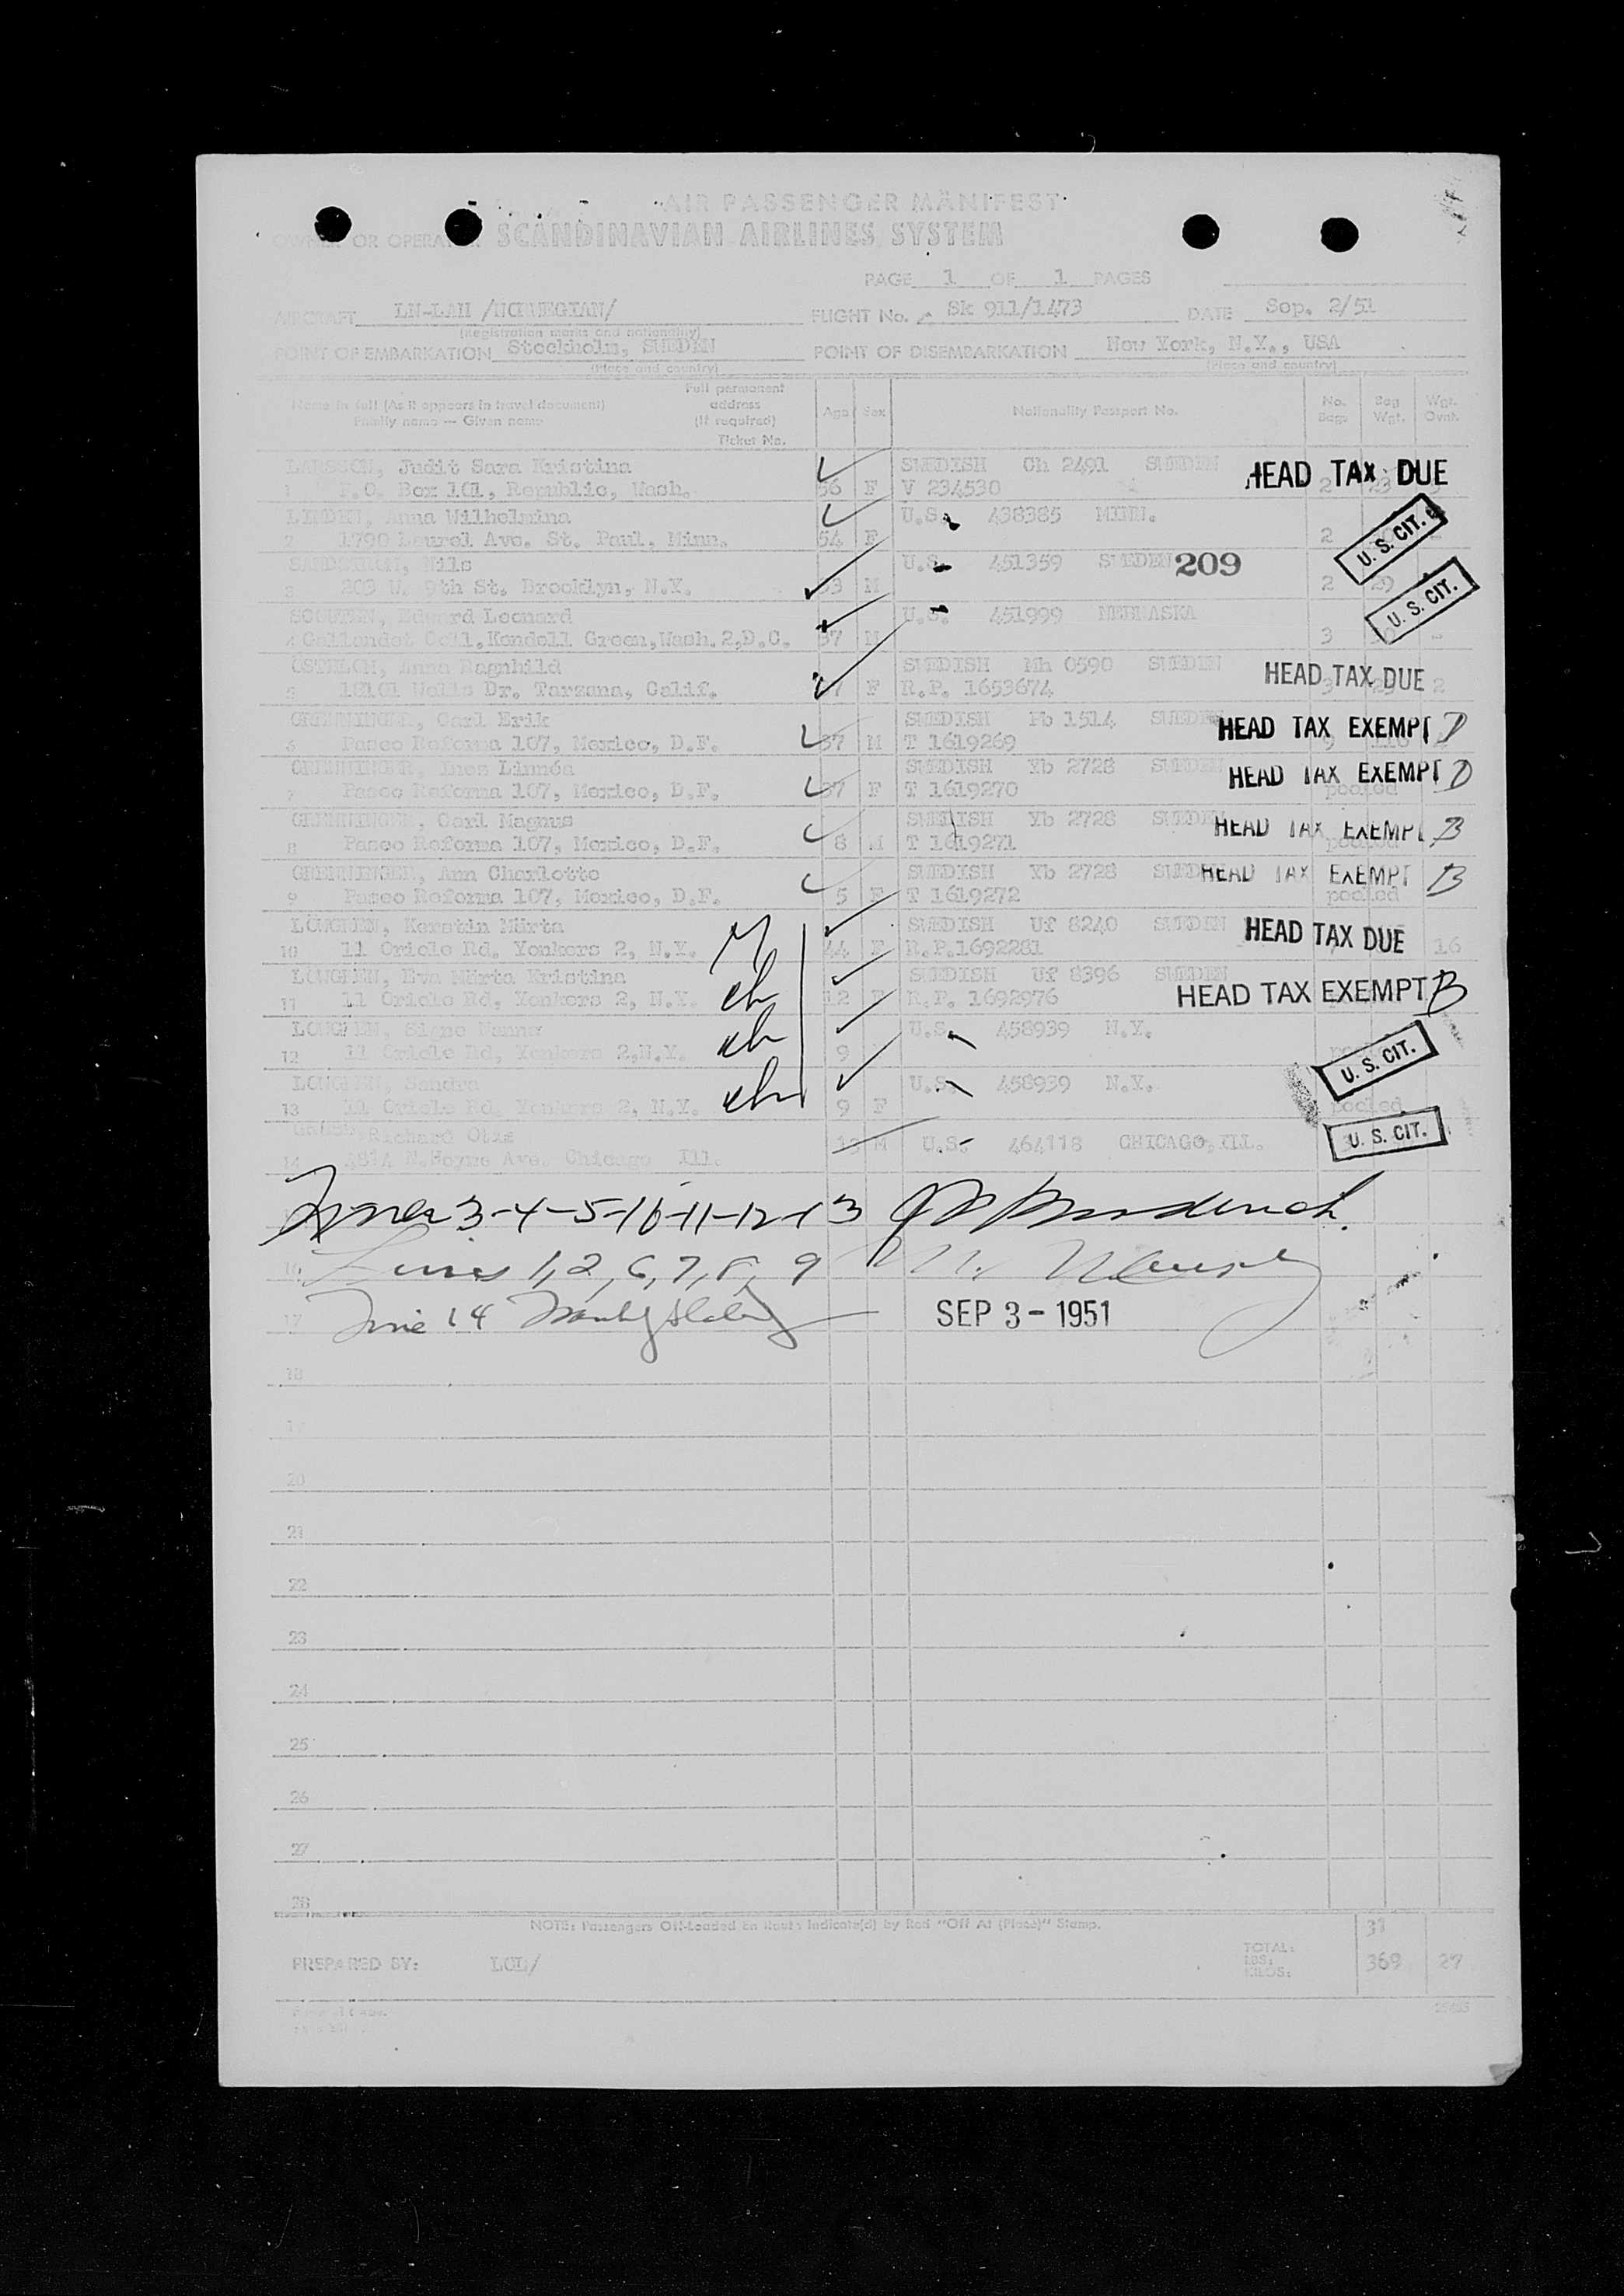 AIR PASSENGER MANIFEST
OWNER OR OPERATOR SCANDINAVIAN AIRLINES SYSTEM
PAGE 1 OF 1 PAGES
AIRCRAFT LN-LAH /NORWEGIAN/ FLIGHT No. Sk 911/1473 DATE Sep. 2/51
(Registration marks and nationality)
POINT OF EMBARKATION Stockholm, SWEDEN POINT OF DISEMBARKATION New York, N.Y., USA
(Place and country) (Place and country)
Name in full (As it appears in travel document) Family name — Given name Full permanent address (If required) Ticket No. Age Sex Nationality Passport No. No. Bags Bag Wgt. Wgt. Ovnt.
LARSSON, Judit Sara Kristina SWEDISH Ch 2491 SWEDEN HEAD TAX DUE
1 P.O. Box 101, Republic, Wash. 56 F V 234530 2 23
LINDEN, Anna Wilhelmina U.S. 438385 MINN.
2 1790 Laurel Ave. St. Paul, Minn. 54 F 2 U. S. CIT.
Nils U.S. 451359 SWEDEN 209
3 203 W. 9th St. Brooklyn, N.Y. 53 M 2 29 U. S. CIT.
SCOUTEN, Edward Leonard U.S. 451999 NEBRASKA
4 Gallaudet Coll, Kendall Green, Wash. 2, D.C. 37 M 3
Anna Ragnhild SWEDISH Mh 0590 SWEDEN HEAD TAX DUE
5 18101 Wells Dr. Tarzana, Calif. 7 F R.P. 1653674 3 2
GRENNINGER, Carl Erik SWEDISH Fb 1514 SWEDEN HEAD TAX EXEMPT D
6 Paseo Reforma 107, Mexico, D.F. 37 M T 1619269
GRENNINGER, Ines Linnéa SWEDISH Yb 2728 SWEDEN HEAD TAX EXEMPT D
7 Paseo Reforma 107, Mexico, D.F. 37 F T 1619270 pooled
GRENNINGER, Carl Magnus SWEDISH Yb 2728 SWEDEN HEAD TAX EXEMPT B
8 Paseo Reforma 107, Mexico, D.F. 8 M T 1619271 pooled
GRENNINGER, Ann Charlotte SWEDISH Yb 2728 SWEDEN HEAD TAX EXEMPT B
9 Paseo Reforma 107, Mexico, D.F. 5 F T 1619272 pooled
LOUGHEN, Kerstin Märta SWEDISH Uf 8240 SWEDEN HEAD TAX DUE
10 11 Oriole Rd. Yonkers 2, N.Y. M 44 F R.P.1692281 16
LOUGHEN, Eva Märta Kristina SWEDISH Uf 8396 SWEDEN
11 11 Oriole Rd, Yonkers 2, N.Y. ch 12 F R.P. 1692976 HEAD TAX EXEMPT B
LOUGHEN, Signe U.S. 458939 N.Y.
12 11 Oriole Rd, Yonkers 2,N.Y. ch 9 pooled U. S. CIT.
LOUGHEN, Sandra U.S. 458939 N.Y.
13 11 Oriole Rd, Yonkers 2, N.Y. ch 9 F pooled
Richard Otis 13 M U.S. 464118 CHICAGO, ILL. U. S. CIT.
14 4814 N.Hoyne Ave. Chicago Ill.
Lines 3-4-5-10-11-12-13
16 Lines 1,2,6,7,8,9
17 Line 14 SEP 3 - 1951
18
19
20
21
22
23
24
25
26
27
28
NOTE: Passengers Off-Loaded En Route Indicate(d) by Red "Off At (Place)" Stamp.
31
PREPARED BY: LOL/ TOTAL: LBS: KILOS: 369 27